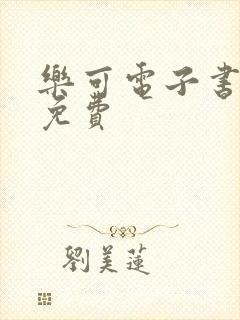 樂可電子書
免費
劉美蓮